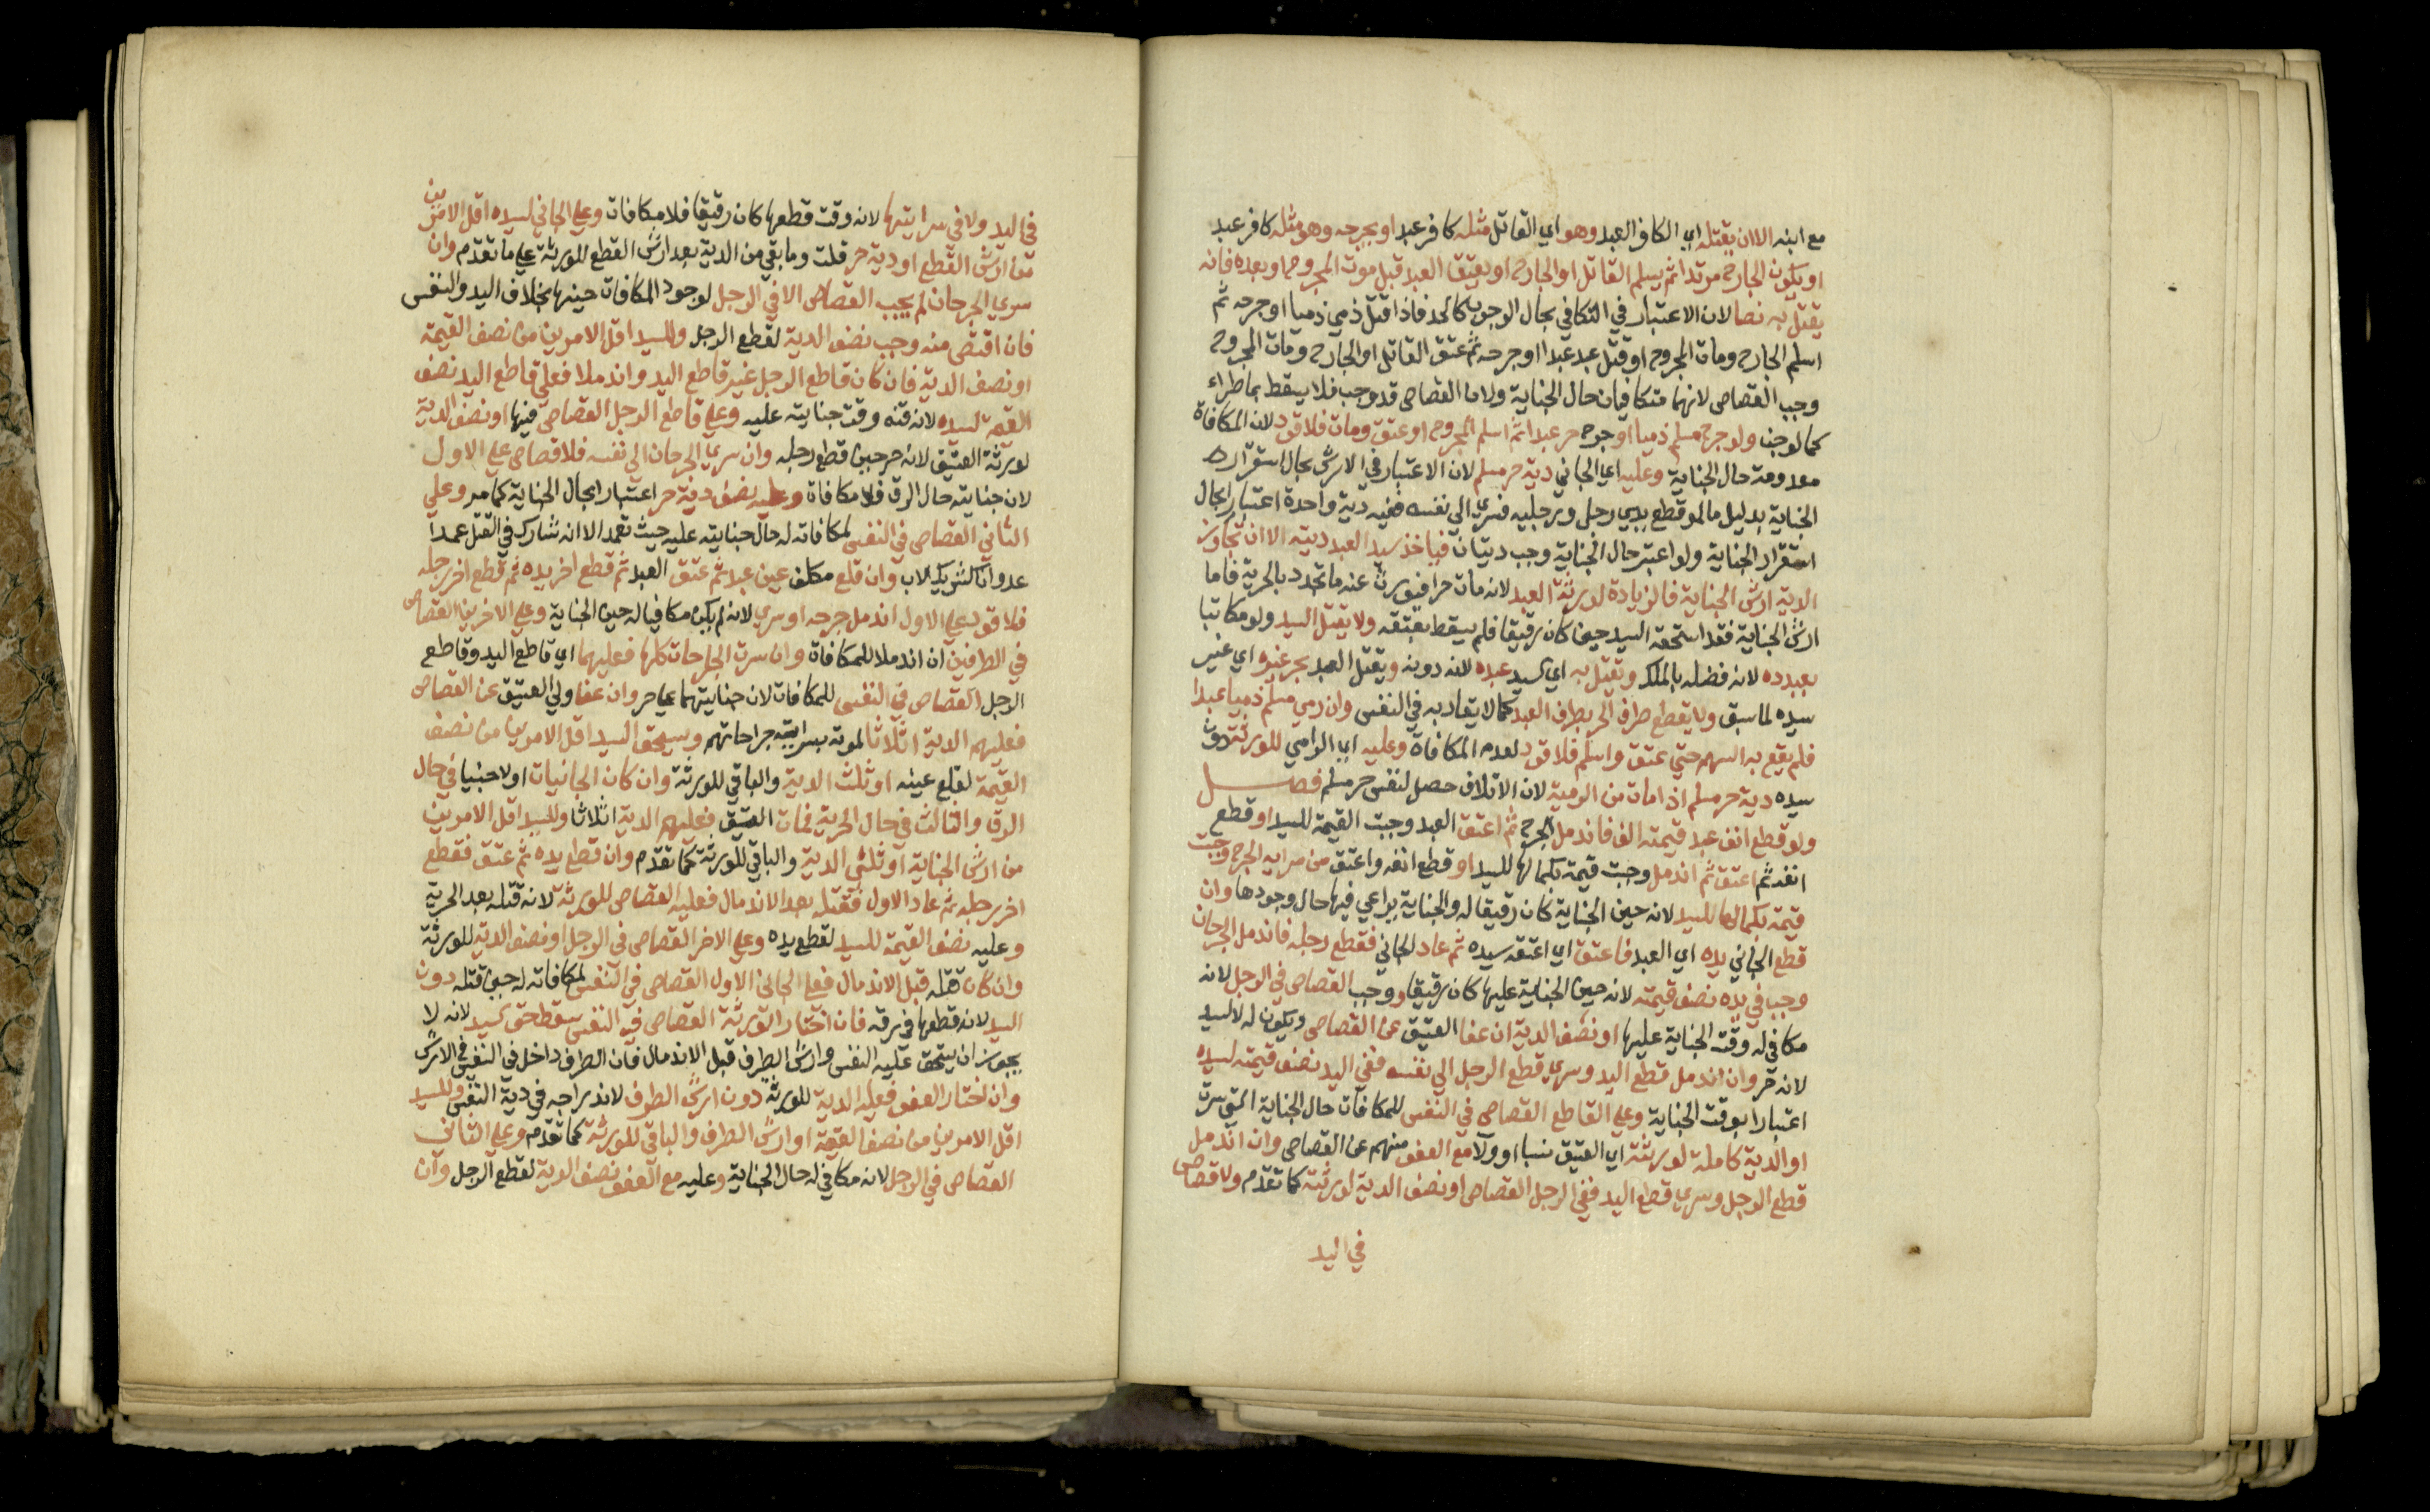 مع ابنه الا ان يقتله اي الكافر العبد وهو اي القاتل مثله كافر عبد او يجرحه وهو مثله كافر عبد
او يكون الجارح مرتدا ثم يسلم القاتل او الجارح او يعتق العبد قبل موت المجروح او بعده فانه
يقتل به نصا لان الاعتبار في التكافي بحال الوجوب كالحد فاذا قتل ذمي ذميا او جرحه ثم
اسلم الجارح ومات المجروح او قتل عبد عبدا او جرحه ثم عتق القاتل او الجارح ومات المجروح
وجب القصاص لانهما متكافيان حال الجناية ولان القصاص قد وجب فلا يسقط بما طراء
كما لو جن ولو جرح مسلم ذميا او جرح حر عبدا ثم اسلم المجروح او عتق ومات فلا قود لان المكافاة
معدومة حال الجناية وعليه اي الجاني دية حر مسلم لان الاعتبار في الارش بحال استقرار
الجناية بدليل ما لو قطع يدي رجل ورجليه فسري الي نفسه ففيه دية واحدة اعتبارا بحال
استقرار الجناية ولو اعتبر حال الجناية وجب ديتان فياخذ سيد العبد ديته الا ان تجاوز
الدية ارش الجناية فالزيادة لورثة العبد لانه مات حرا فيورث عنه ما تجدد بالحرية فاما
ارش الجناية فقد استحقه السيد حين كان رقيقا فلم يسقط بعتقه ولا يقتل السيد ولو مكاتبا
بعبده لانه فضله بالملك ويقتل به اي بسيد عبده لانه دونه ويقتل العبد بحر غيره اي غير
سيده لما سبق ولا يقطع طرف الحر بطرف العبد كما لا يقاد به في النفس وان رمي مسلم ذميا عبدا
فلم يقع به السهم حتي عتق واسلم فلا قود لعدم المكافاة وعليه اي الرامي للورثة دون
سيده دية حر مسلم اذا مات من الرمية لان الاتلاف حصل لنفس حر مسلم فصل
ولو قطع انف عبد قيمته الف فاندمل الجرح ثم اعتق العبد وجبت القيمة للسيد او قطع
انفه ثم اعتق ثم اندمل وجبت قيمة بكمالها للسيد او قطع انفه واعتق من سراية الجرح وجبت
قيمة بكمالها للسيد لانه حين الجناية كان رقيقا له والجناية يراعي فيها حال وجودها وان
قطع الجاني يده اي العبد فاعتق اي اعتقه سيده ثم عاد الجاني فقطع رجله فاندمل الجرحان
وجب في يده نصف قيمته لانه حين الجناية عليها كان رقيقا ووجب القصاص في الرجل لانه
مكافي له وقت الجناية عليها او نصف الدية ان عفا العتيق عن القصاص ويكون له لا لسيد
لانه حر وان اندمل قطع اليد وسري قطع الرجل الي نفسه ففي اليد نصف قيمته لسيده
اعتبارا بوقت الجناية وعلي القاطع القصاص في النفس للمكافات حال الجناية التي سرت
او الدية كاملة لورثته اي العتيق نسبا او ولا مع العفو منهم عن القصاص وان اندمل
قطع الرجل وسري قطع اليد ففي الرجل القصاص او نصف الدية لورثته كما تقدم ولا قصاص
في اليد
في اليد ولا في سرايتها لانه وقت قطعها كان رقيقا فلا مكافات وعلي الجاني لسيده اقل الامرين
من ارش القطع او دية حر قلت وما بقي من الدية بعد ارش القطع للورثة علي ما تقدم وان
سري الجرحان لم يجب القصاص الا في الرجل لوجود المكافات حينها بخلاف اليد والنفس
فان اقتص منه وجب نصف الدية لقطع الرجل وللسيد اقل الامرين من نصف القيمة
او نصف الدية فان كان قاطع الرجل غير قاطع اليد واندملا فعلي قاطع اليد نصف
القيمة لسيده لانه قنه وقت جنايته عليه وعلي قاطع الرجل القصاص فيها او نصف الدية
لورثة العتيق لانه حر حين قطع رجله وان سري الجرحان الي نفسه فلا قصاص علي الاول
لان جنايته حال الرق فلا مكافاة وعليه نصف دية حر اعتبارا بحال الجناية كما مر وعلي
الثاني القصاص في النفس لمكافاته له حال جنايته عليه حيث تعمد الا انه شارك في القتل عمدا
عدوانا كشريك الاب وان قلع مكلف عين عبد ثم عتق العبد ثم قطع اخر يده ثم قطع اخر رجله
فلا قود علي الاول اندمل جرحه او سري لانه لم يكن مكافيا له حين الجناية وعلي الاخرين القصاص
في الطرفين ان اندملا للمكافاة وان سرت الجراحات كلها فعليهما اي قاطع اليد وقاطع
الرجل القصاص في النفس للمكافات لان جنايتهما علي حر وان عفا ولي العتيق عن القصاص
فعليهم الدية اثلاثا لموته بسراية جراحاتهم ويستحق السيد اقل الامرين من نصف
القيمة لقلع عينه او ثلث الدية والباقي للورثة وان كان الجانيات اولا جنيا في حال
الرق والثالث في حال الحرية فمات العتيق فعليهم الدية اثلاثا وللسيد اقل الامرين
من ارش الجناية او ثلثي الدية والباقي للورثة كما تقدم وان قطع يده ثم عتق فقطع
اخر رجله ثم عاد الاول فقتله بعد الاندمال فعليه القصاص للورثة لانه قتله بعد الحرية
وعليه نصف القيمة للسيد لقطع يده وعلي الاخر القصاص في الرجل او نصف الدية للورثة
وان كان قتله قبل الاندمال فعلي الجاني الاول القصاص في النفس لمكافاته له حين قتله دون
اليد لانه قطعها في رقه فان اختار الورثة القصاص في النفس سقط حق سيد لانه لا
يجوز ان يستحق عليه النفس وارش الطرف قبل الاندمال فان الطرف داخل في النفس في الارش
وان اختار العفو فعليه الدية للورثة دون ارش الطرف لاندراجه في دية النفس وللسيد
اقل الامرين من نصف القيمة او ارش الطرف والباقي للورثة كما تقدم وعلي الثاني
القصاص في الرجل لانه مكافي له حال الجناية وعليه مع العفو نصف الدية لقطع الرجل وان